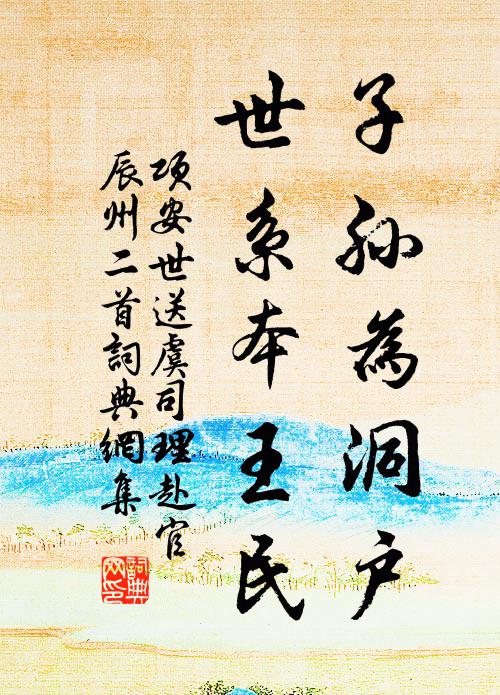 子孫為洞戶
世系本王民
項安世送虞司理赴官
辰州二首詞典網集
詞典網印